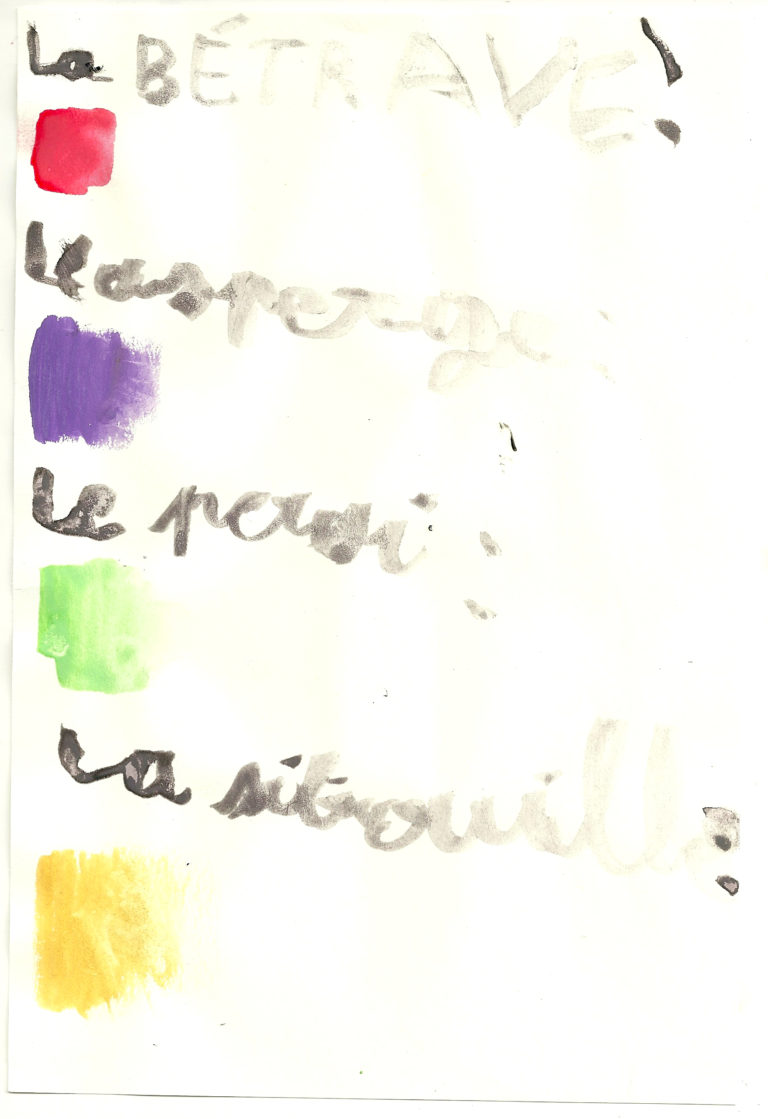 La BÉTRAVE!
L'asperge:
Le persi:
La sitrouille: